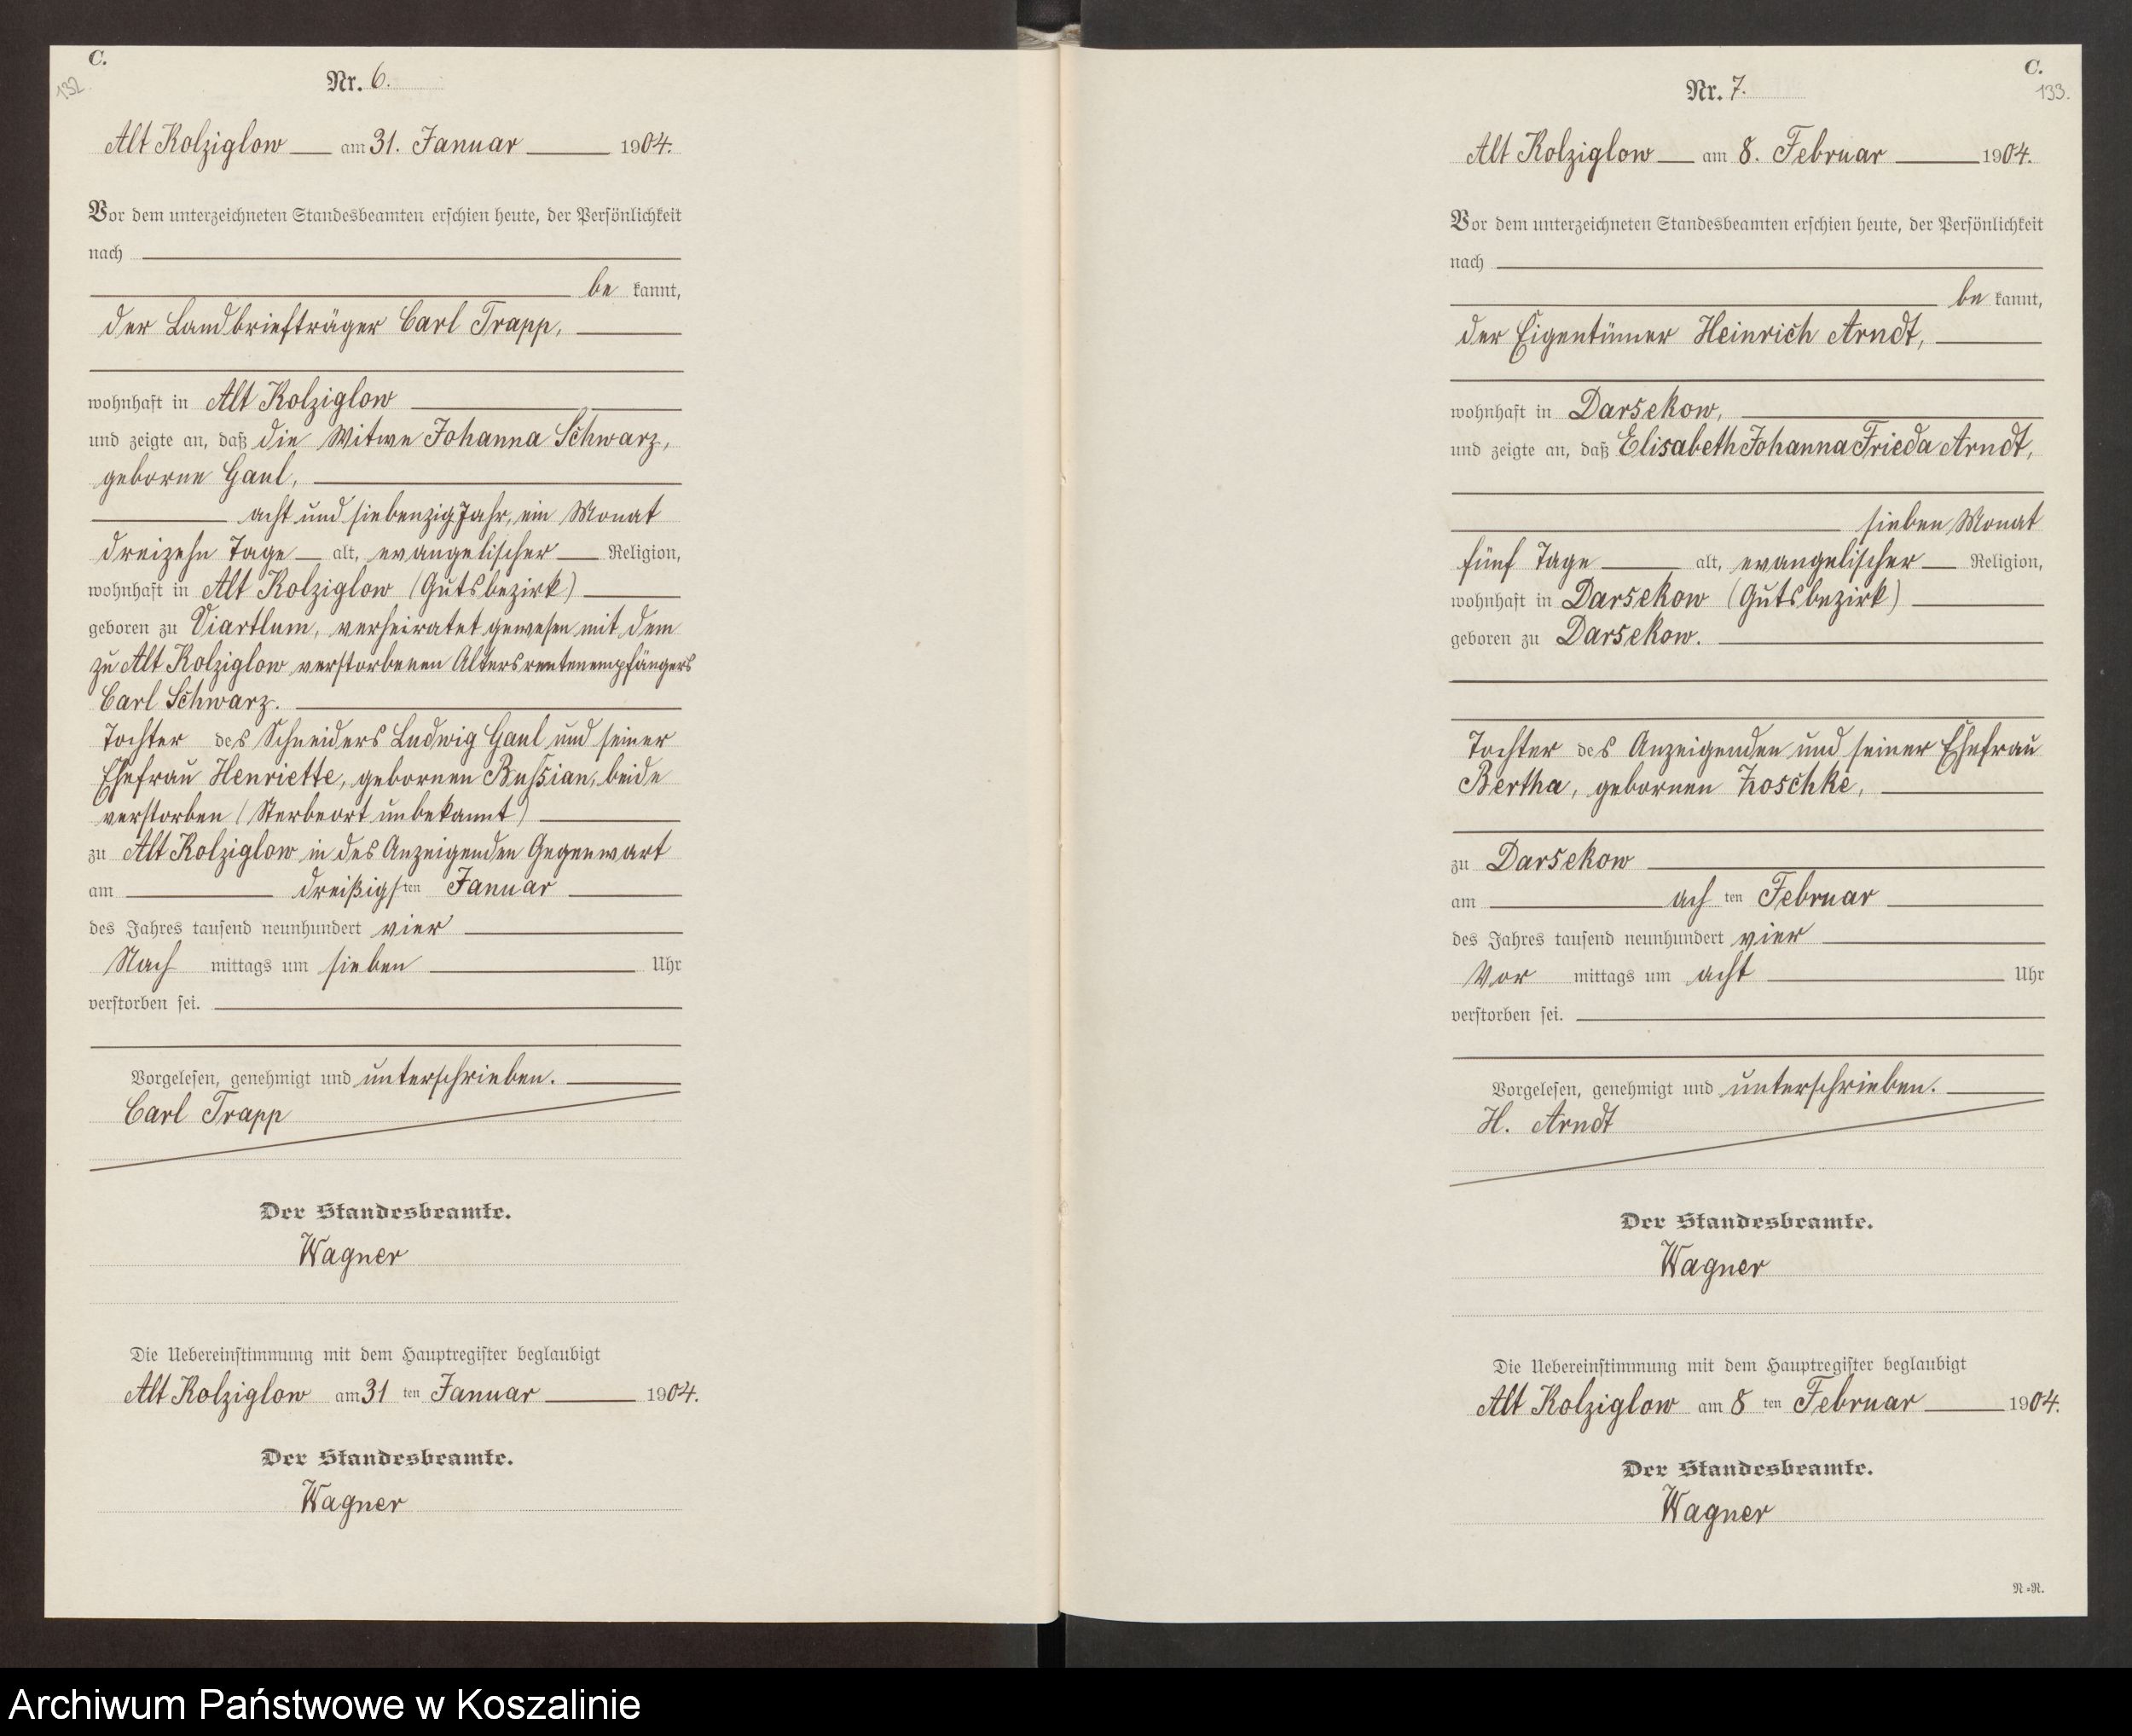 C.
132
Nr. 6.
Alt Kolziglow am 31. Januar 1904.
Vor dem unterzeichneten Standesbeamten erschien heute, der Persönlichkeit
nach
be kannt,
der Landbriefträger Carl Trapp,
wohnhaft in Alt Kolziglow
und zeigte an, daß die Witwe Johanna Schwarz,
geborne Gaul,
acht und siebenzig Jahr, ein Monat
dreizehn Tage alt, evangelischer Religion,
wohnhaft in Alt Kolziglow (Gutsbezirk)
geboren zu Viartlum, verheiratet gewesen mit dem
zu Alt Kolziglow verstorbenen Altersrentenempfängers
Carl Schwarz.
Tochter des Schneiders Ludwig Gaul und seiner
Ehefrau Henriette, gebornen Bussian, beide
verstorben (Sterbeort unbekannt)
zu Alt Kolziglow in des Anzeigenden Gegenwart
am dreißigsten Januar
des Jahres tausend neunhundert vier
Nach mittags um sieben Uhr
verstorben sei.
Vorgelesen, genehmigt und unterschrieben.
Carl Trapp
Der Standesbeamte.
Wagner
Die Uebereinstimmung mit dem Hauptregister beglaubigt
Alt Kolziglow am 31 ten Januar 1904.
Der Standesbeamte.
Wagner
C.
133.
Nr. 7.
Alt Kolziglow am 8. Februar 1904.
Vor dem unterzeichneten Standesbeamten erschien heute, der Persönlichkeit
nach
be kannt,
der Eigentümer Heinrich Arndt,
wohnhaft in Darsekow,
und zeigte an, daß Elisabeth Johanna Frieda Arndt,
sieben Monat
fünf Tage alt, evangelischer Religion,
wohnhaft in Darsekow (Gutsbezirk)
geboren zu Darsekow.
Tochter des Anzeigenden und seiner Ehefrau
Bertha, gebornen Zoschke,
zu Darsekow
am ach ten Februar
des Jahres tausend neunhundert vier
Vor mittags um acht Uhr
verstorben sei.
Vorgelesen, genehmigt und unterschrieben.
H. Arndt
Der Standesbeamte.
Wagner
Die Uebereinstimmung mit dem Hauptregister beglaubigt
Alt Kolziglow am 8 ten Februar 1904.
Der Standesbeamte.
Wagner
N=N.
Archiwum Państwowe w Koszalinie